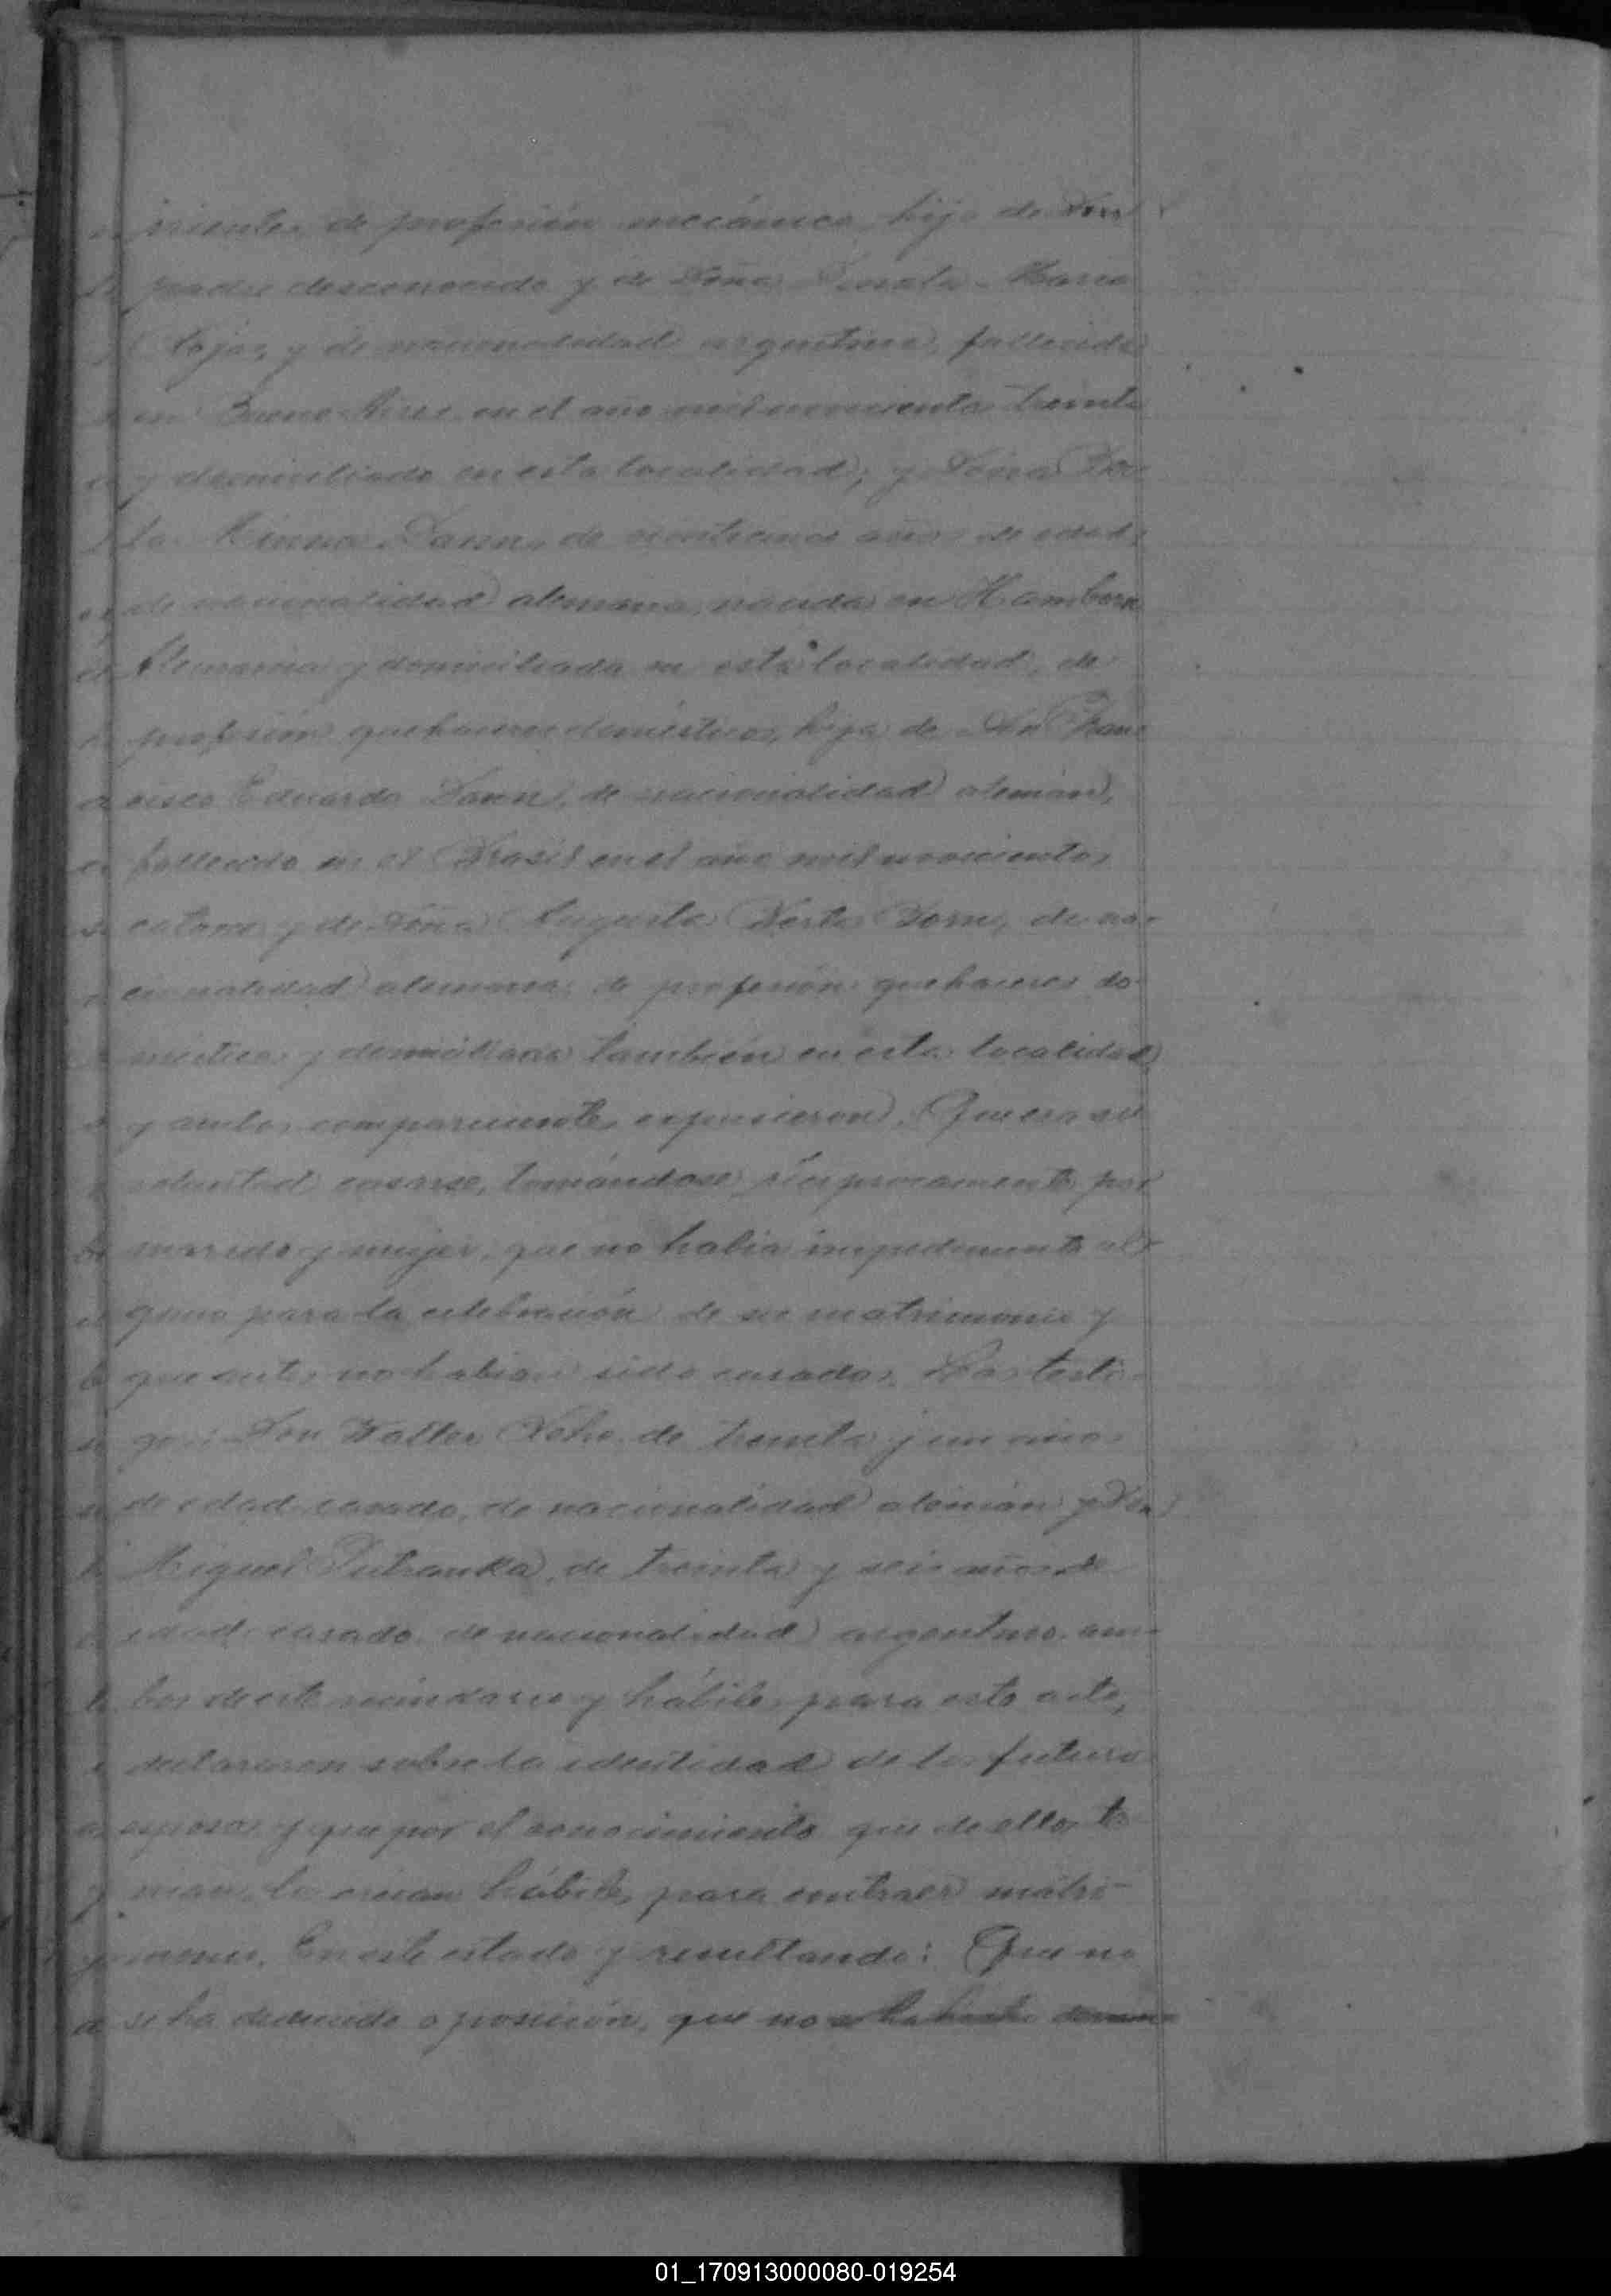 rrientes de profesión mecánico, hijo de Don
padre desconocido y de Doña María
Rojas, y de nacionalidad argentina, fallecida
en Buenos Aires en el año mil novecientos treinta
y domiciliado en esta localidad; y Doña
de veinticinco años de edad,
de nacionalidad alemana, nacida en Hamborn
Alemania y domiciliada en esta localidad, de
profesión quehaceres domésticos, hija de Don Fran
cisco Eduardo Dann, de nacionalidad alemán,
fallecido en el Brasil en el año mil novecientos
catorce y de Doña Augusta de na-
cionalidad alemana, de profesión quehaceres do-
mésticos y domiciliada también en esta localidad
y ambos comparecientes expusieron: Que era su
voluntad casarse, tomándose recíprocamente por
marido y mujer, que no había impedimento al-
guno para la celebración de su matrimonio y
que antes no habían sido casados. Los testi-
gos: Don Walter de treinta y un años
de edad, casado, de nacionalidad alemán y Don
Miguel de treinta y seis años de
edad, casado, de nacionalidad argentino, am-
bos de este vecindario y hábiles para este acto,
declararon sobre la identidad de los futuros
esposos y que por el conocimiento que de ellos te
nían, los creían hábiles para contraer matri-
monio. En este estado y resultando: Que no
se ha deducido oposición, que no
01_170913000080-019254